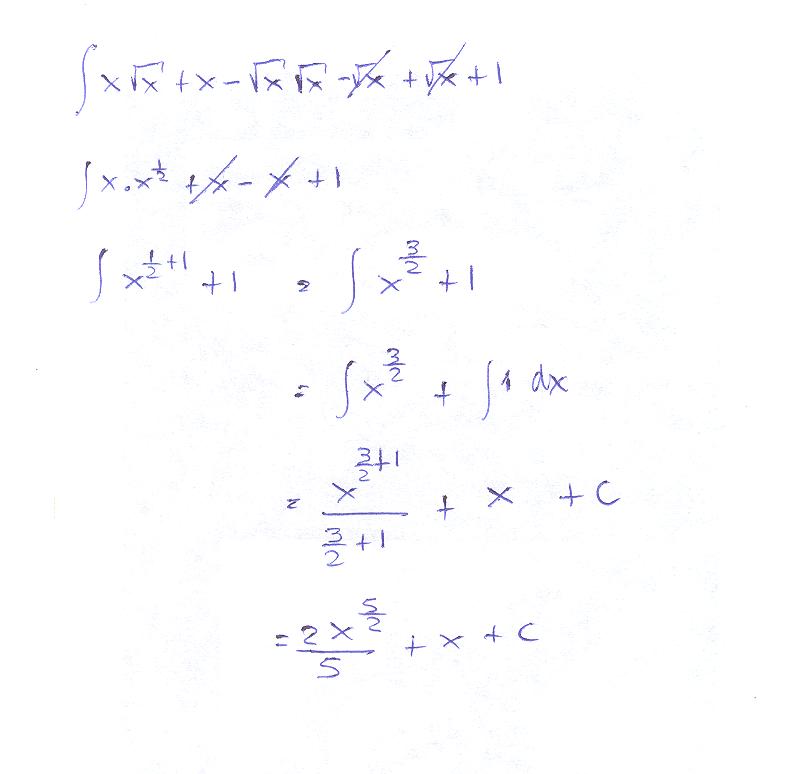 ∫ x√x + x − √x √x − √x + √x + 1
∫ x · x^{1/2} + x − x + 1
∫ x^{1/2 + 1} + 1 = ∫ x^{3/2} + 1
= ∫ x^{3/2} + ∫ 1 dx
= x^{3/2 + 1} / (3/2 + 1) + x + C
= 2x^{5/2} / 5 + x + C